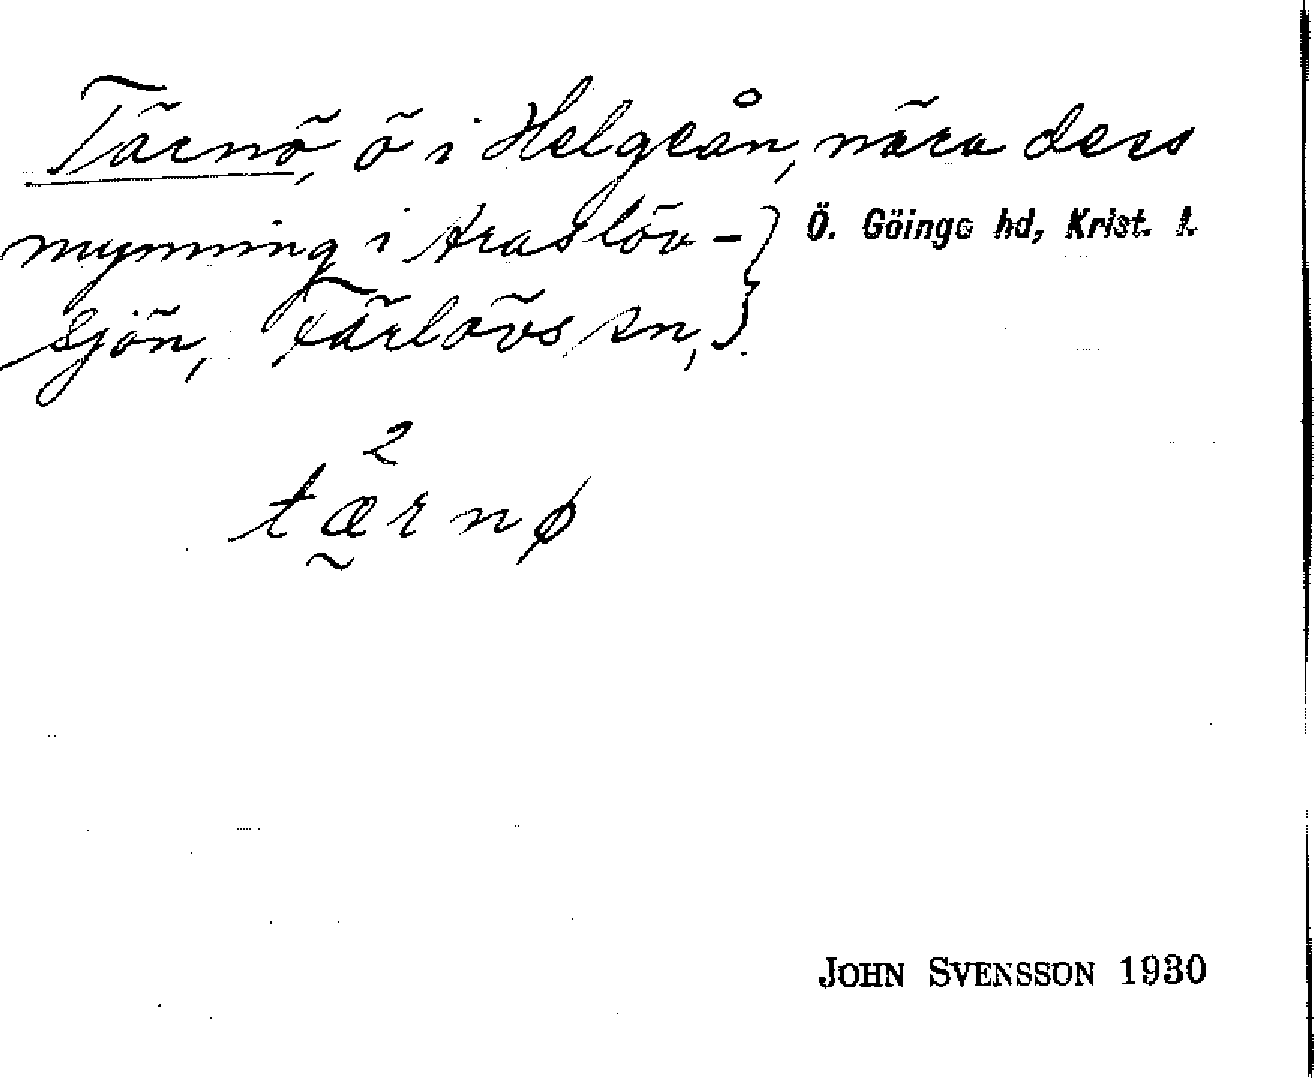 Tärnö, ö i Helgeån, nära dess
mynning i Araslöv-
sjön, Färlövs sn,
Ö. Göinge hd, Krist. l.
2
tærnø
JOHN SVENSSON 1930